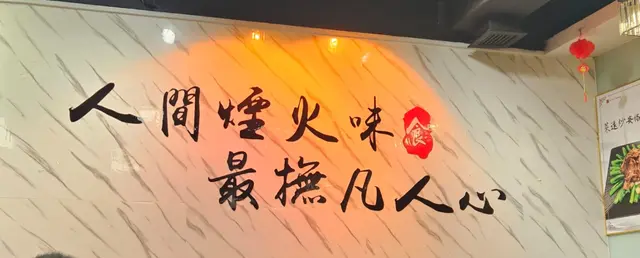 人間煙火味
食
最撫凡人心